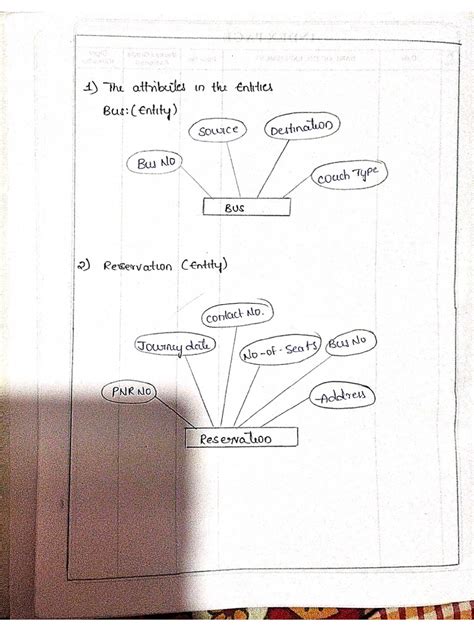 1) The attributes in the Entities
Bus: (Entity)
Source
Destination
Bus No
Couch Type
BUS
2) Reservation (Entity)
Contact No.
Journey date
No-of-Seats
Bus No
PNR NO
Address
Reservation